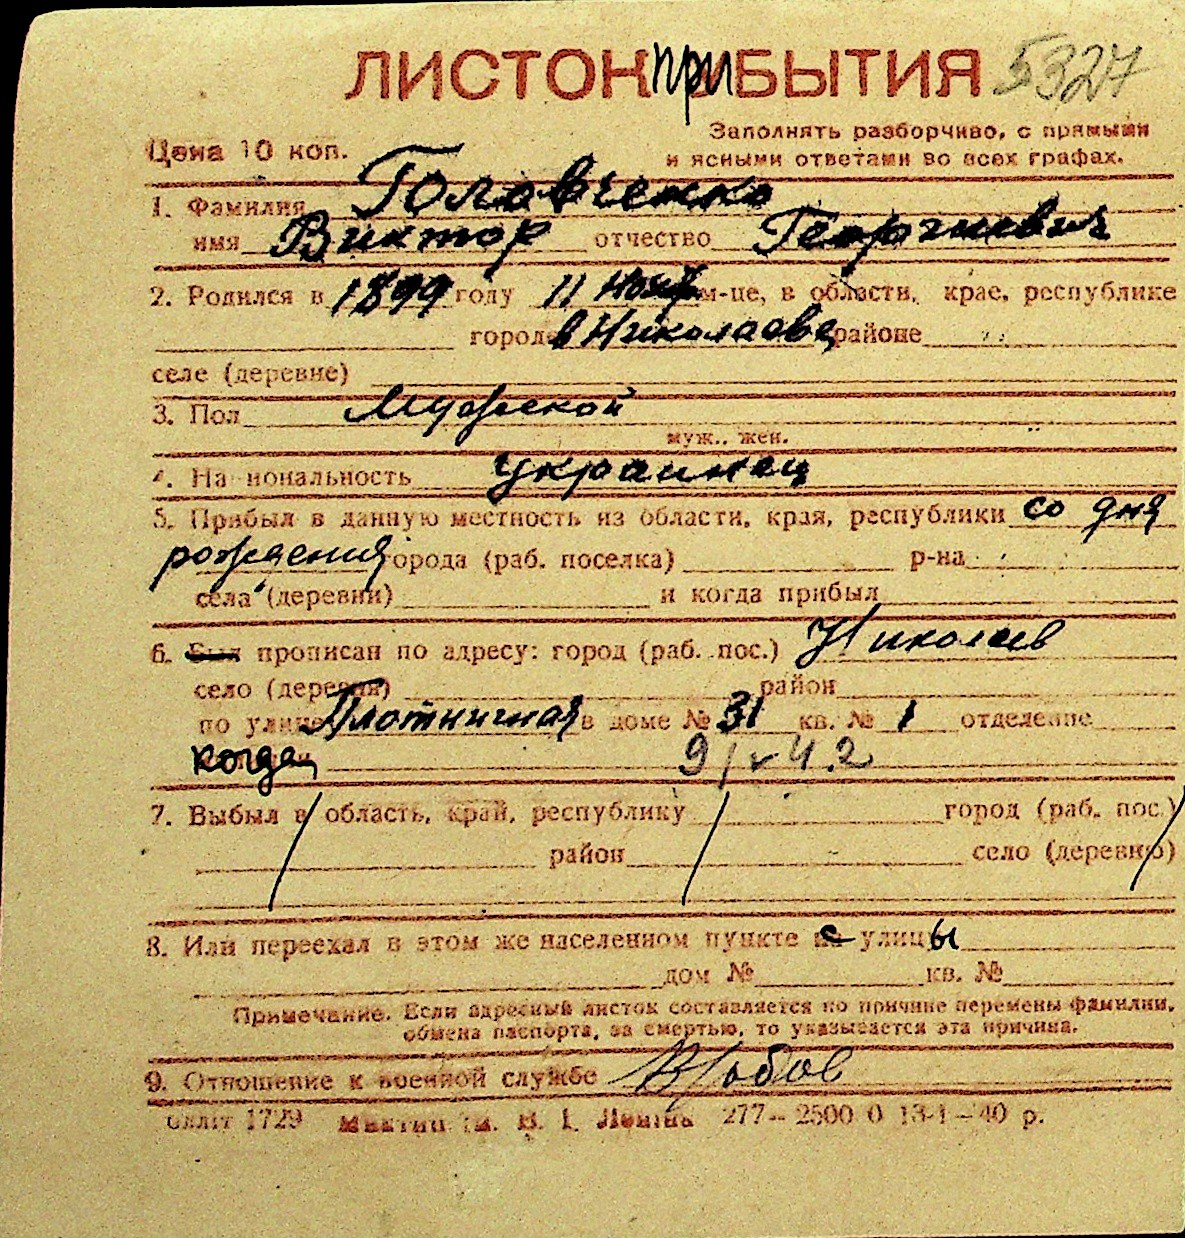 ЛИСТОК прИБЫТИЯ 5327
Цена 10 коп.
Заполнять разборчиво, с прямыми
и ясными ответами во всех графах.
1. Фамилия Головченко
имя Виктор отчество Георгиевич
2. Родился в 1899 году 11 Нояб м-це, в области, крае, республике
городе в Николаеве районе
селе (деревне)
3. Пол Мужской
муж., жен.
4. Национальность украинец
5. Прибыл в данную местность из области, края, республики со дня
рождения города (раб. поселка) р-на
села (деревни) и когда прибыл
6. Был прописан по адресу: город (раб. пос.) Николаев
село (деревня) район
по улице Плотничная в доме № 31 кв. № 1 отделение
когда 9/V 42
7. Выбыл в область, край, республику город (раб. пос.)
район село (деревню)
8. Или переехал в этом же населенном пункте с улицы
дом № кв. №
Примечание. Если адресный листок составляется по причине перемены фамилии,
обмена паспорта, за смертью, то указывается эта причина.
9. Отношение к военной службе
1729 ім. В. І. Леніна 277—2500 0 13-1—40 р.